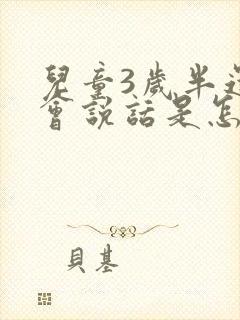 兒童3歲半還
會說話是怎
貝基